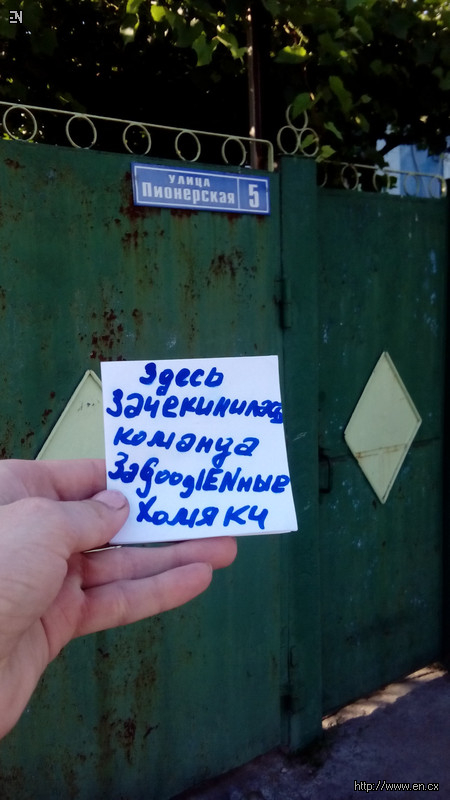 EN
УЛИЦА
Пионерская 5
Здесь
Зачекинилась
команда
ЗаGooglENные
Хомяки
http://www.en.cx